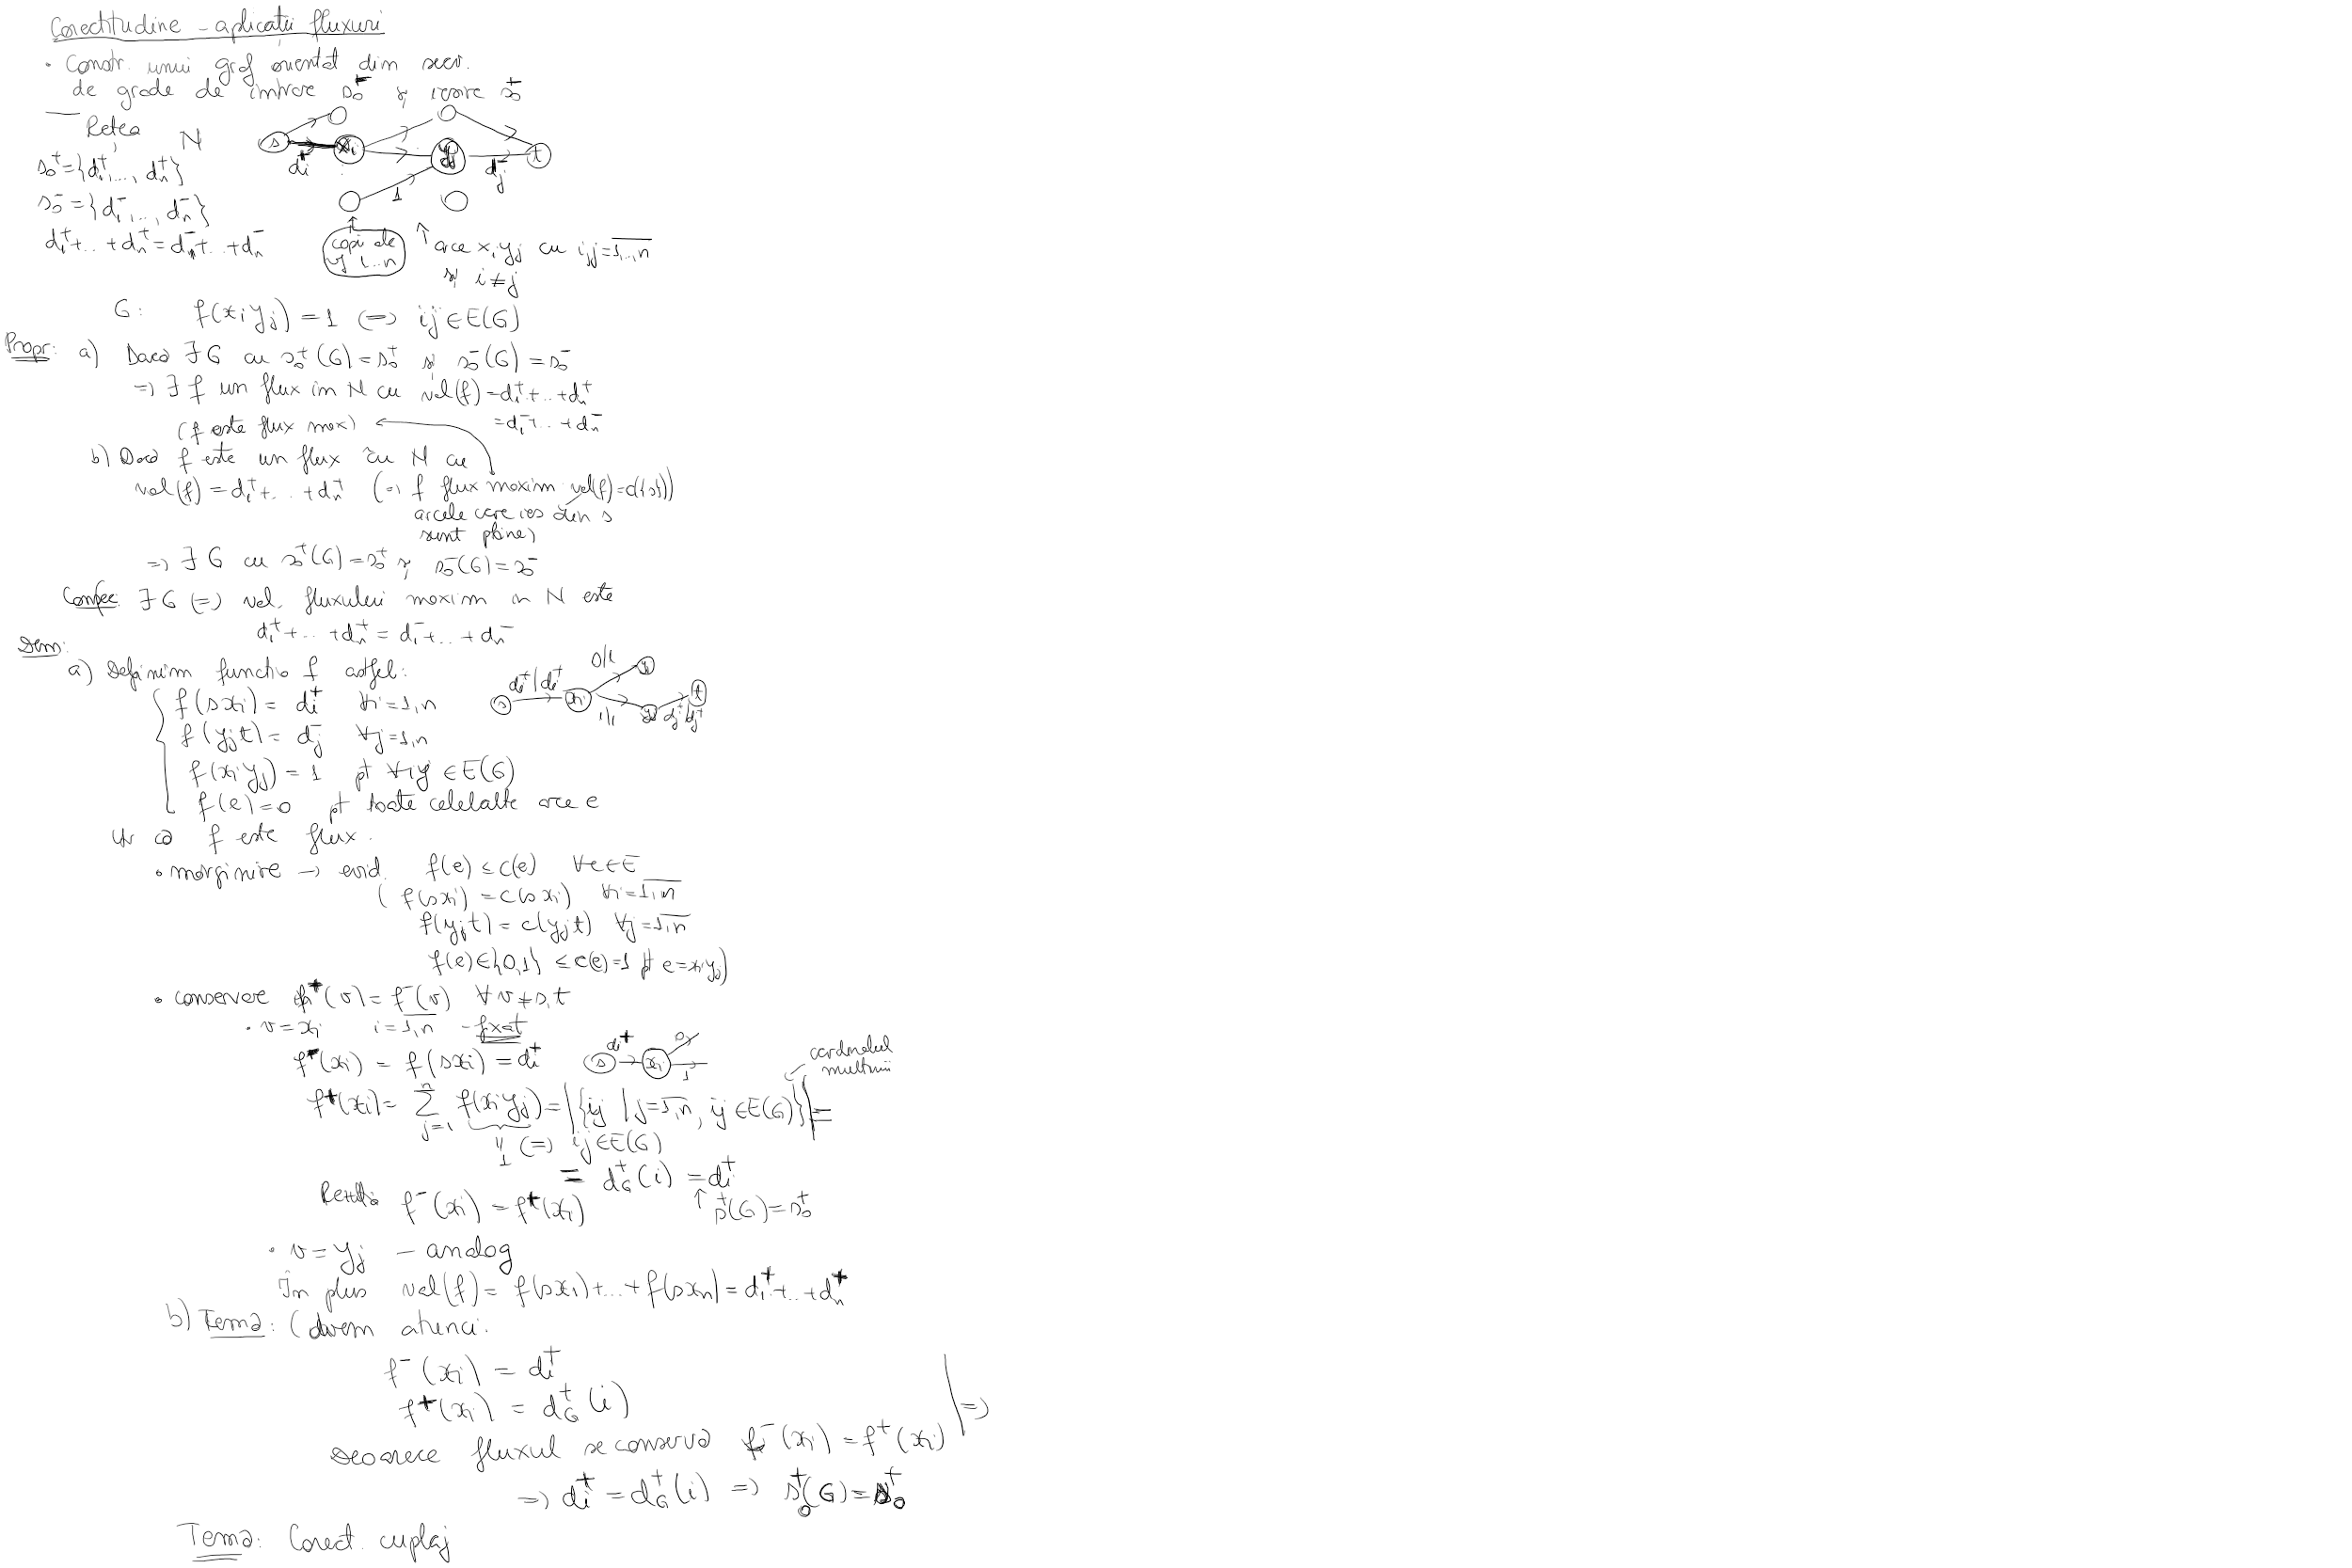 Corectitudine – aplicații fluxuri
• Constr. unui graf orientat din secv.
de grade de intrare s₀⁻ și ieșire s₀⁺
Rețea N
s₀⁺={d₁⁺,..., dₙ⁺}
s₀⁻={d₁⁻,..., dₙ⁻}
d₁⁺+..+dₙ⁺=d₁⁻+..+dₙ⁻
s xᵢ yⱼ t
dᵢ⁺ 1 dⱼ⁻
copii ale
vf 1...n
↑ arce xᵢyⱼ cu i,j=1,..,n
și i≠j
G: f(xᵢyⱼ)=1 (=) ij∈E(G)
Propr: a) Dacă ∃G cu s₀⁺(G)=s₀⁺ și s₀⁻(G)=s₀⁻
=) ∃ f un flux în N cu val(f)=d₁⁺+..+dₙ⁺
=d₁⁻+..+dₙ⁻
(f este flux max)
b) Dacă f este un flux în N cu
val(f)=d₁⁺+...+dₙ⁺ (=) f flux maxim val(f)=c({s}))
arcele care ies din s
sunt pline)
=) ∃ G cu s₀⁺(G)=s₀⁺ și s₀⁻(G)=s₀⁻
∃G (=) val. fluxului maxim în N este
d₁⁺+..+dₙ⁺=d₁⁻+..+dₙ⁻
Dem:
a) Definim funcția f astfel:
f(sxᵢ)=dᵢ⁺ ∀i=1,n
f(yⱼt)=dⱼ⁻ ∀j=1,n
f(xᵢyⱼ)=1 pt ∀ij∈E(G)
f(e)=0 pt toate celelalte arce e
s dᵢ⁺/dᵢ⁺ xᵢ 0/1 1/1 t
Vr că f este flux.
• mărginire → evid. f(e)≤c(e) ∀e∈E
(f(sxᵢ)=c(sxᵢ) ∀i=1,n
f(yⱼt)=c(yⱼt) ∀j=1,n
f(e)∈{0,1}≤c(e)=1 pt e=xᵢyⱼ)
• conservare f⁺(v)=f⁻(v) ∀v≠s,t
• v=xᵢ i=1,n – fixat
f⁻(xᵢ)=f(sxᵢ)=dᵢ⁺
s dᵢ⁺ xᵢ 0 1
cardinalul
mulțimii
f⁺(xᵢ)=∑ⱼ₌₁ⁿ f(xᵢyⱼ)=|{ij | j=1,n, ij∈E(G)}|=
1 (=) ij∈E(G)
= d_G⁺(i)=dᵢ⁺
↑ s₀⁺(G)=s₀⁺
Rezultă f⁻(xᵢ)=f⁺(xᵢ)
• v=yⱼ – analog
În plus val(f)=f(sx₁)+...+f(sxₙ)=d₁⁺+..+dₙ⁺
b) Temă: (avem atunci:
f⁻(xᵢ)=dᵢ⁺
f⁺(xᵢ)=d_G⁺(i)
Deoarece fluxul se conservă f⁻(xᵢ)=f⁺(xᵢ) | =)
=) dᵢ⁺=d_G⁺(i) =) s₀⁺(G)=s₀⁺
Temă: Corect. cuplaj